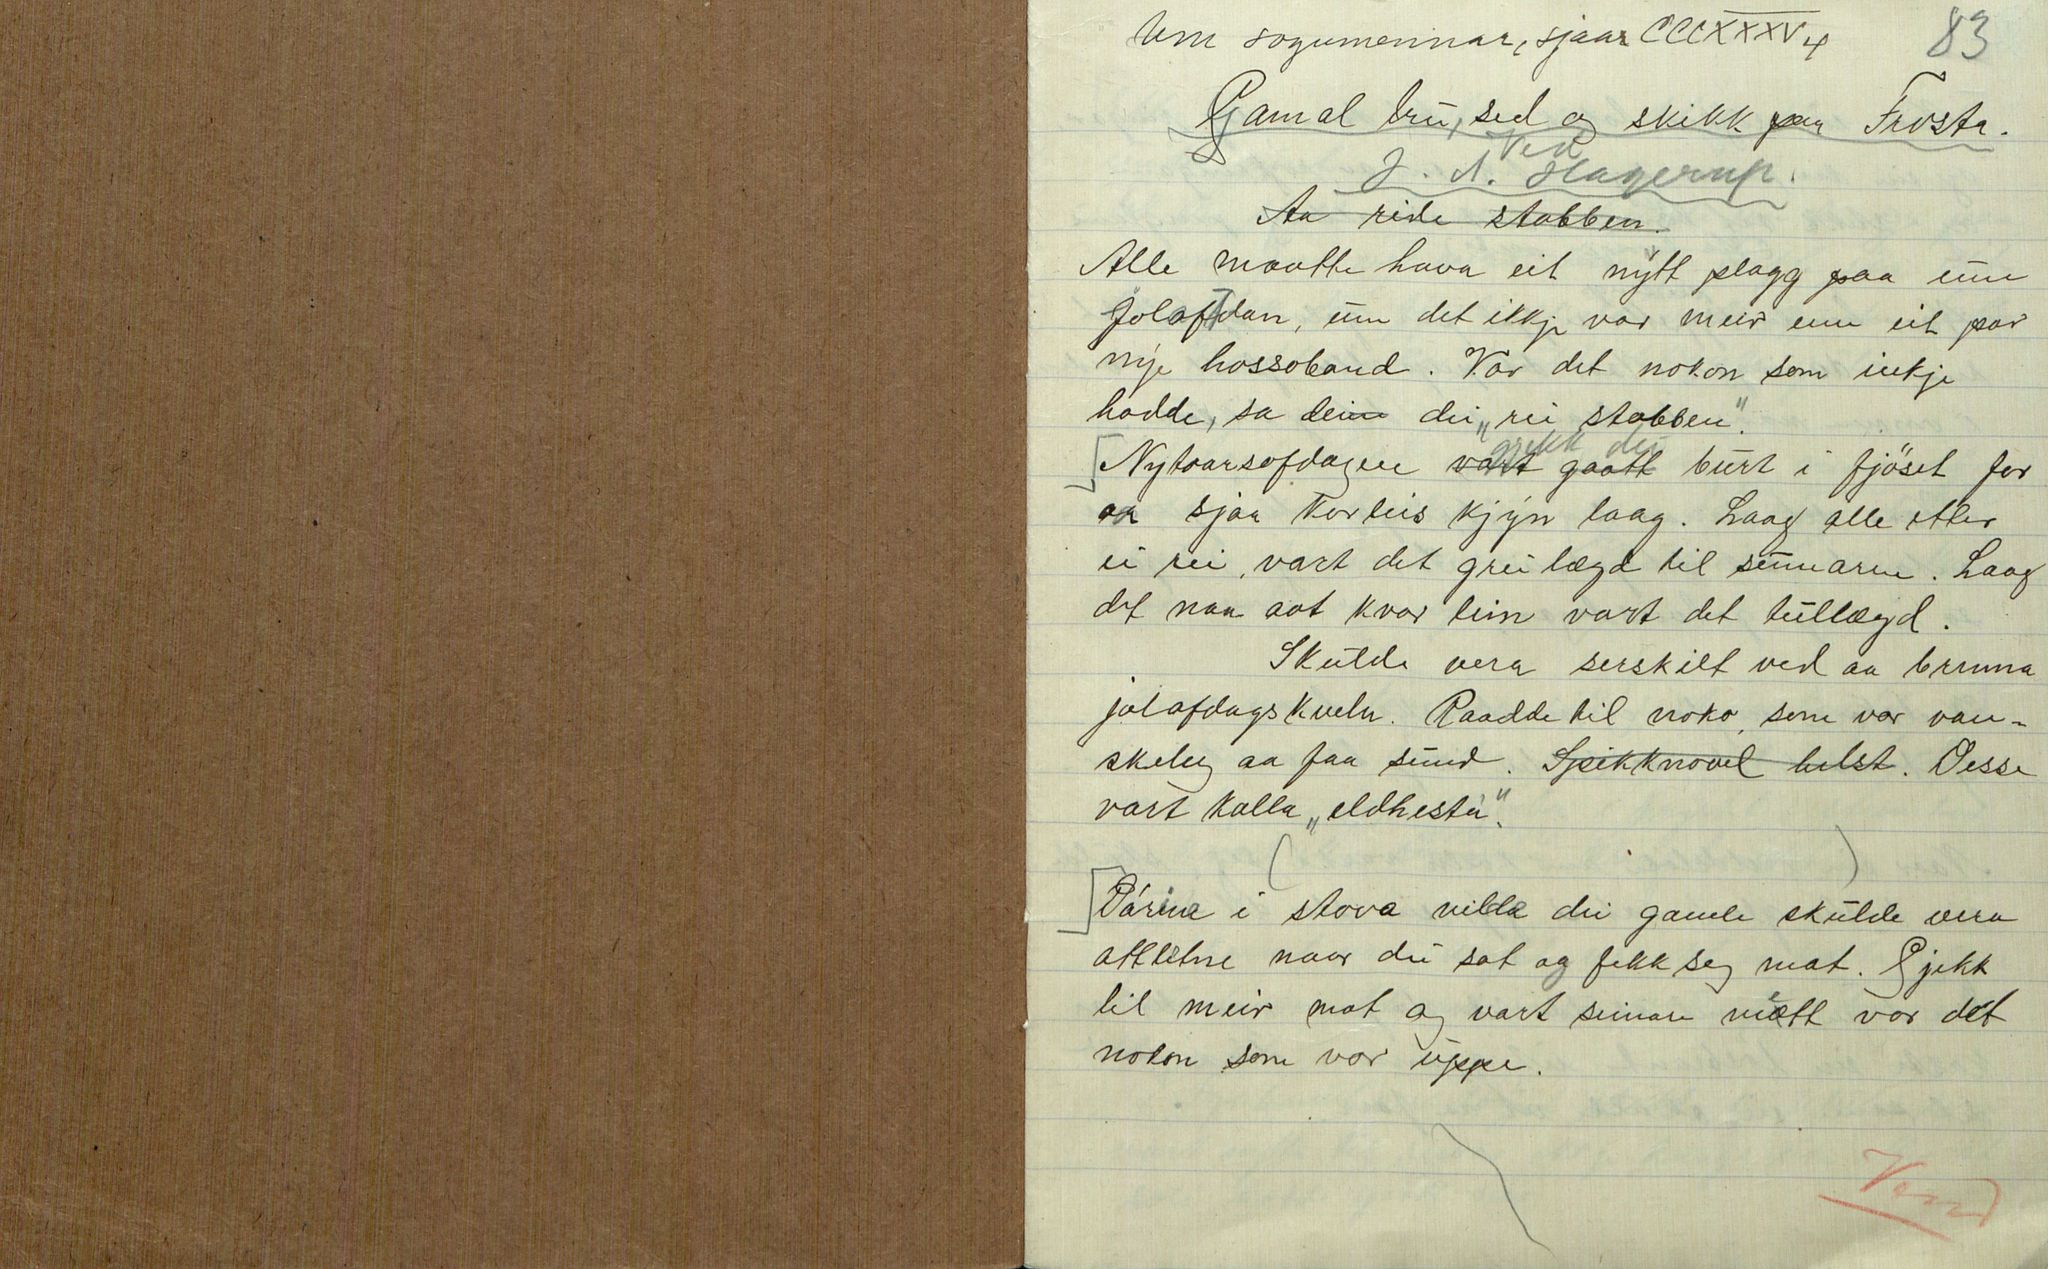 Um sogumennar, sjaa CCCXXXV4 83
Gamal tru, sed og skikk paa Frosta.
Ved
J. A. Hagerup.
Aa ride stabben.
Alle maatte hava eit nytt plagg paa um
Jolaftdan, um det ikkje var meir enn eit par
nye hossoband. Var det nokon som inkje
hadde, sa dei „rei stabben".
gjekk dei
Nytaarsafdagen vart gaatt burt i fjöset for
aa sjaa korleis kjyn laag. Laag alle etter
ei rei, vart det grei lægd til sumaren. Laag
det naa aat kvar lein vart det tullægd.
Skulde vera serskilt ved aa brenna
jolafdagskveln. Raadde til noko, som var van-
skeleg aa faa sund. Spikknavel helst. Desse
vart kalla „eldhesta".
Dárina i stova vilde dei gamle skulde vera
attletne naar dei sat og fekk seg mat. Gjekk
til meir mat og vart seinare mett var det
nokon som var uppe.
Vend